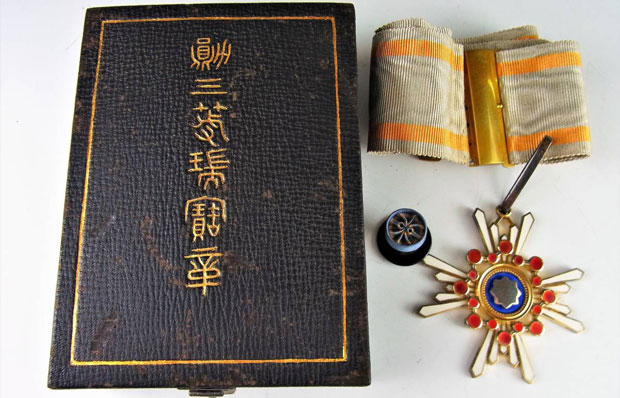 勳三等瑞寶章